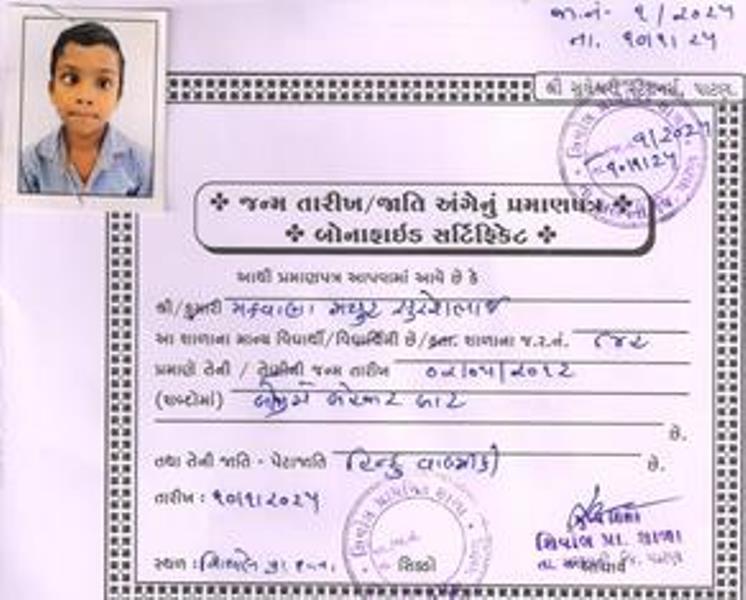 જા.નં- ૧/૨૦૨૫
તા. ૧૦/૧/૨૫
૧/૨૦૨૫
૧૦/૧/૨૫
❖ જન્મ તારીખ/જાતિ અંગેનું પ્રમાણપત્ર ❖
❖ બોનાફાઈડ સર્ટિફિકેટ ❖
આથી પ્રમાણપત્ર આપવામાં આવે છે કે
શ્રી/કુમારી મકવાણા મયુર સુરેશભાઈ
આ શાળાના માન્ય વિદ્યાર્થી/વિદ્યાર્થિની છે/હતા. શાળાના જ.ર.નં. ૮૪૨
પ્રમાણે તેની / તેણીની જન્મ તારીખ ૦૨/૦૫/૨૦૧૨
(શબ્દોમાં) બીજી મે બે હજાર બાર
છે.
તથા તેની જાતિ - પેટાજાતિ હિન્દુ વાલ્મીકી છે.
તારીખ : ૧૦/૧/૨૦૨૫
સ્થળ : સિક્કો આચાર્ય
પ્રા. શાળા